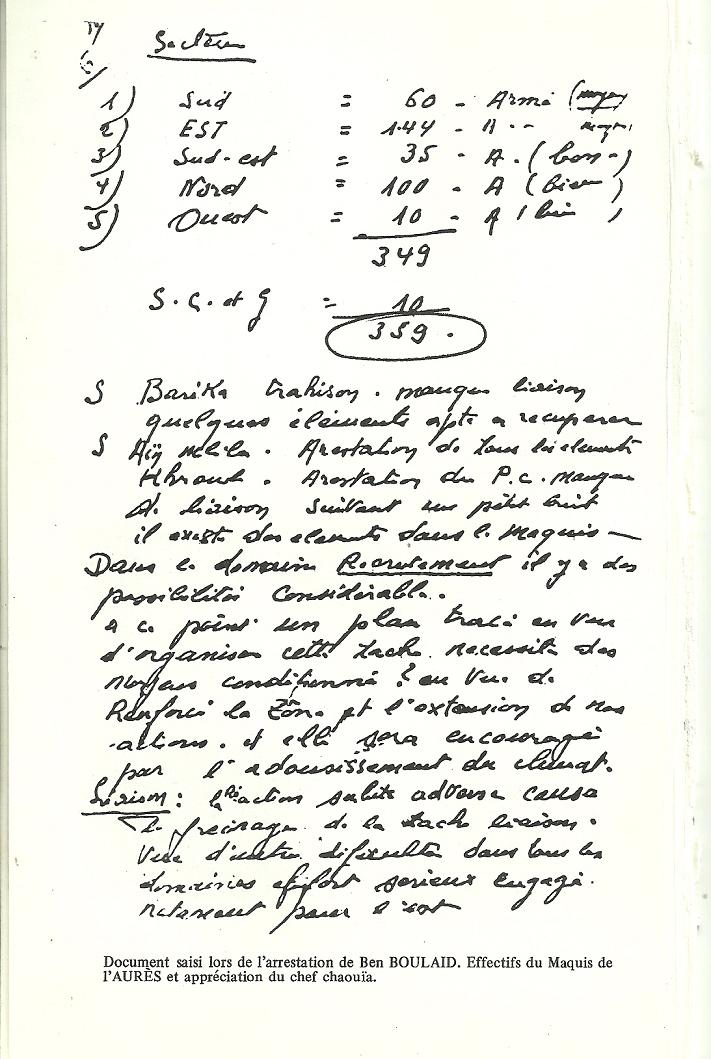 Secteur
1) Sud = 60 - Armé (moyen)
2) EST = 144 - A -- moyen
3) Sud-est = 35 - A. (bon-)
4) Nord = 100 - A (bien)
5) Ouest = 10 - A (bien)
349
S. C. et G = 10
359.
S Barika trahison. manque liaison
quelques éléments apte a recuperer
S Aïn M'lila. Arestation de tous les elements
Khroub. Arestation du P.C. manque
de liaison suivant un petit bruit
il existe des elements dans le Maquis —
Dans le domaine Recrutement il y a des
possibilités Considérable.
a ce point un plan tracé en vue
d'organiser cette tache necessite des
moyens conditionné ? en vue de
Renforcé la Zône et l'extension de nos
actions. et elle sera encouragé
par l'adousissement du climat.
Liaison : la réaction subite adverse causa
le freinage de la tache liaison.
Vue d'autre dificulté dans tous les
domaines effort serieux engagé.
notament pour l'est
Document saisi lors de l'arrestation de Ben BOULAID. Effectifs du Maquis de
l'AURÈS et appréciation du chef chaouïa.